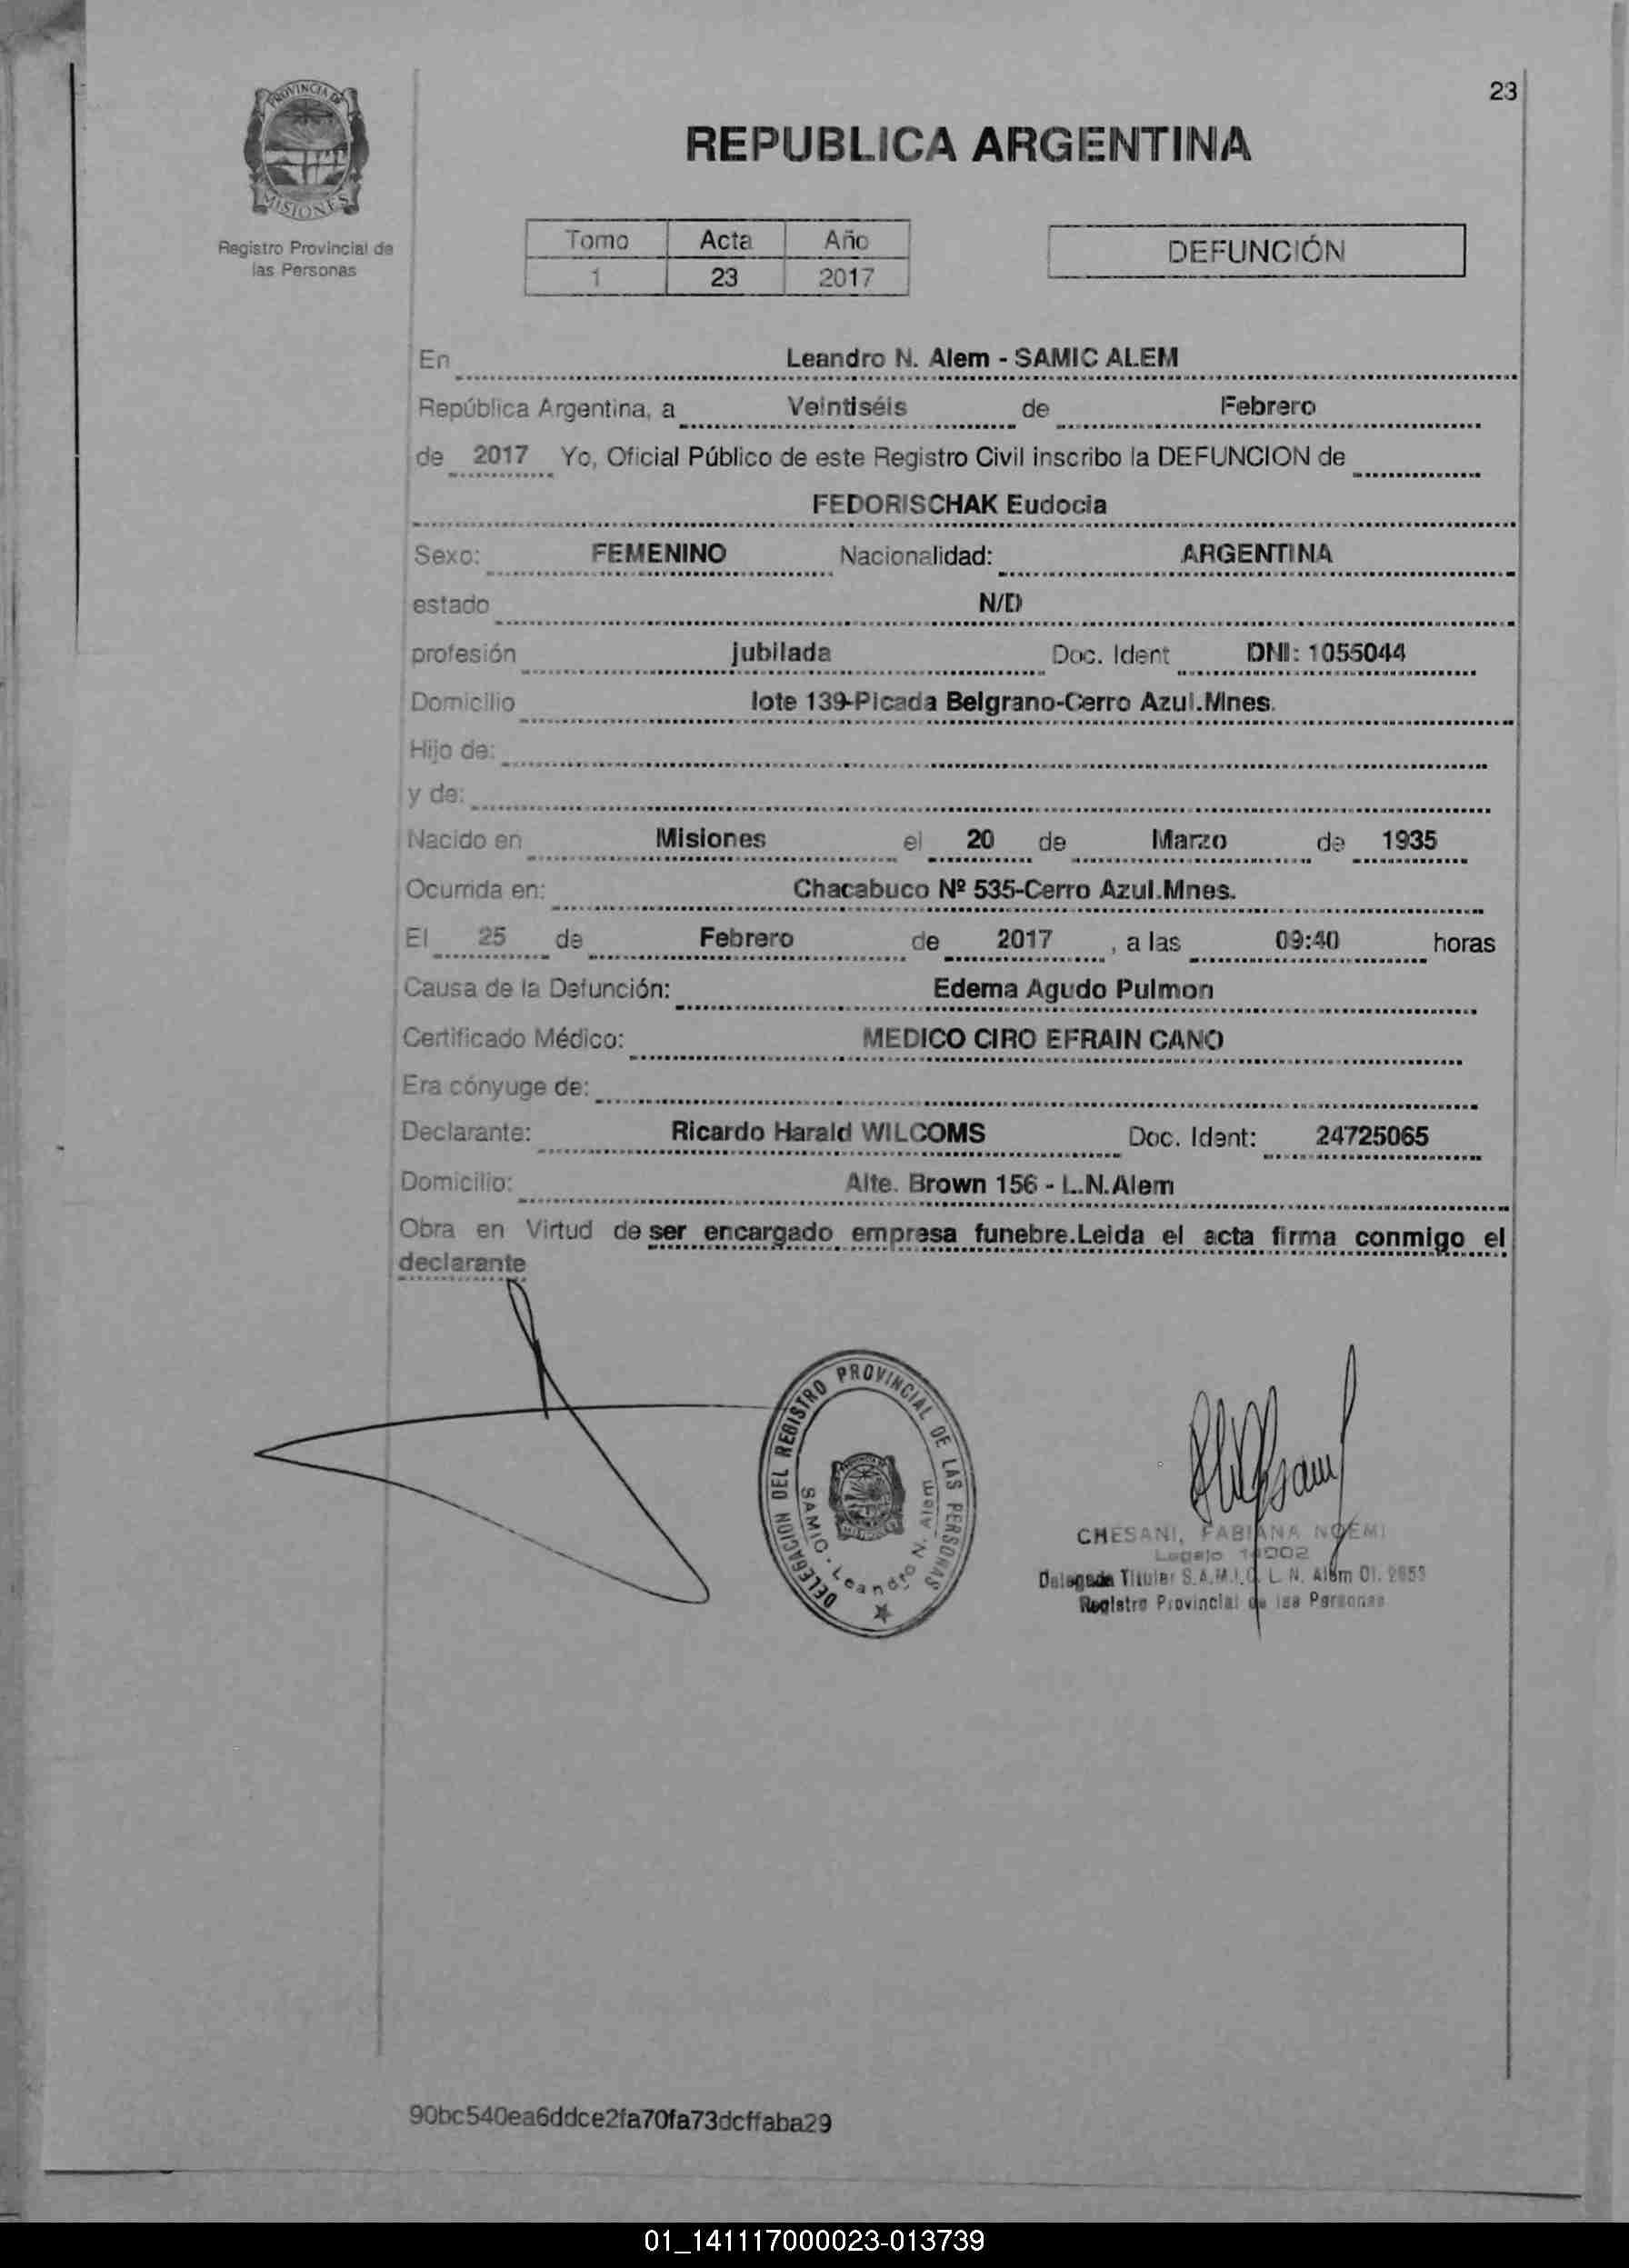 23
PROVINCIA DE
MISIONES
REPUBLICA ARGENTINA
Registro Provincial de
las Personas
Tomo Acta Año
1 23 2017
DEFUNCIÓN
En Leandro N. Alem - SAMIC ALEM
República Argentina, a Veintiséis de Febrero
de 2017 Yo, Oficial Público de este Registro Civil inscribo la DEFUNCION de
FEDORISCHAK Eudocia
Sexo: FEMENINO Nacionalidad: ARGENTINA
estado N/D
profesión jubilada Doc. Ident DNI: 1055044
Domicilio lote 139-Picada Belgrano-Cerro Azul.Mnes.
Hijo de:
y de:
Nacido en Misiones el 20 de Marzo de 1935
Ocurrida en: Chacabuco Nº 535-Cerro Azul.Mnes.
El 25 de Febrero de 2017 , a las 09:40 horas
Causa de la Defunción: Edema Agudo Pulmon
Certificado Médico: MEDICO CIRO EFRAIN CANO
Era cónyuge de:
Declarante: Ricardo Harald WILCOMS Doc. Ident: 24725065
Domicilio: Alte. Brown 156 - L.N.Alem
Obra en Virtud de ser encargado empresa funebre.Leida el acta firma conmigo el
declarante
DELEGACION DEL REGISTRO PROVINCIAL DE LAS PERSONAS
SAMIC - Leandro N. Alem
CHESANI, FABIANA NOEMI
Legajo
Delegada Titular S.A.M.I.C. L. N. Alem Of. 2953
Registro Provincial de las Personas
90bc540ea6ddce2fa70fa73dcffaba29
01_141117000023-013739